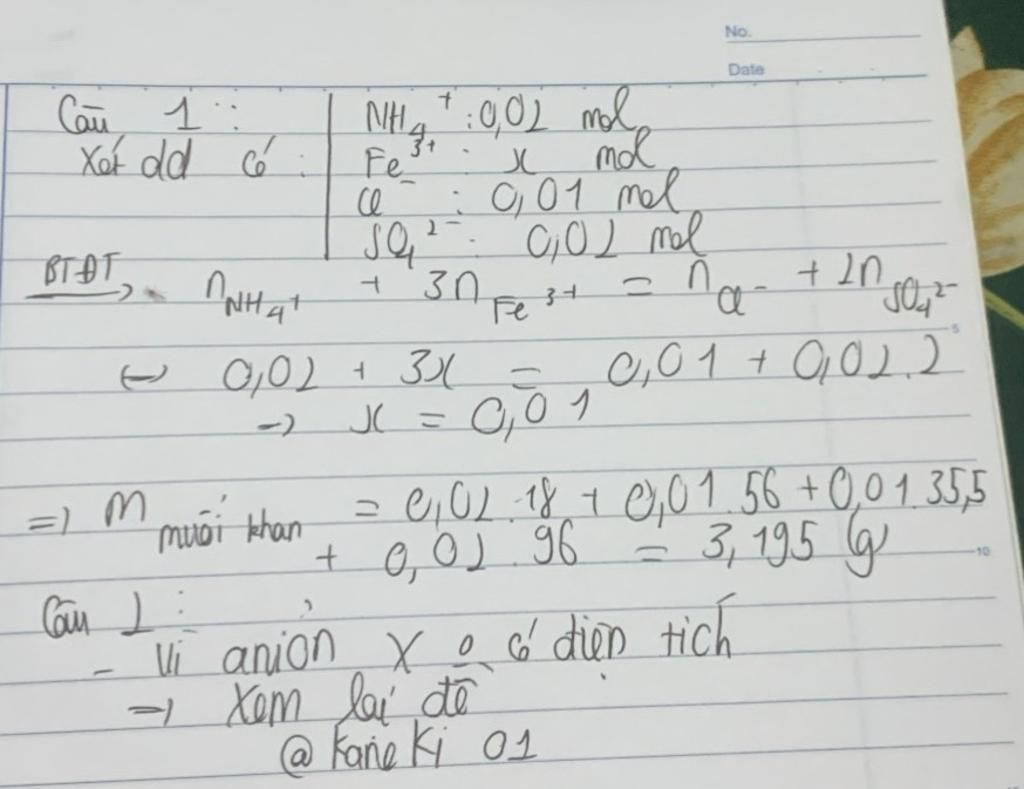 No.
Date
Câu 1 :
Xét dd có :
NH₄⁺ : 0,02 mol
Fe³⁺ : x mol
Cl⁻ : 0,01 mol
SO₄²⁻ : 0,02 mol
BTĐT → n NH₄⁺ + 3n Fe³⁺ = n Cl⁻ + 2n SO₄²⁻
↔ 0,02 + 3x = 0,01 + 0,02.2
→ x = 0,01
=> m muối khan = 0,02.18 + 0,01.56 + 0,01.35,5
+ 0,02.96 = 3,195 (g)
Câu 2 :
- Vì anion X o có điện tích
→ Xem lại đề
@Kaneki 01
5
10